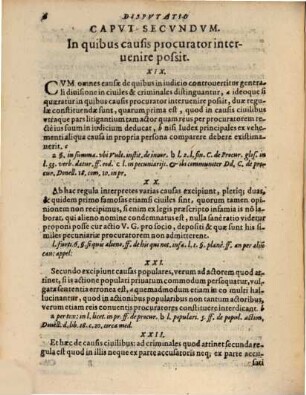 DISPUTATIO
CAPUT SECUNDUM.
In quibus causis procurator inter-
uenire possit.
XIX.
CUM omnes causæ de quibus in iudicio controuertitur genera-
li diuisione in ciuiles & criminales distinguantur, a ideoque si
quæratur in quibus causis procurator interuenire possit, duæ regu-
læ constituendæ sunt, quarum prima est, quod in causis ciuilibus
vtraque pars litigantium tam actor quam reus per procuratorem re-
ctè iis suum in iudicium deducat, b nisi Iudex principales ex vehe-
menti aliqua causa in propria persona comparere debere existima-
uerit. c
a §. in summa. vbi Vult. instit. de iniur. b l. 1. l. fin. C. de Procur. glos. in
l. 33. verb. datur. ff. eod. c l. in pecuniariis. & ibi communiter Dd. C. de pro-
cur. Donell. 18. com. 10. in pr.
XX.
Ab hac regula interpretes varias causas excipiunt, plerique duas,
& quidem primo famosas etiamsi ciuiles sint, quorum tamen opini-
onem non recipimus, si enim ex legis præscripto infamia is non la-
borat, qui alieno nomine condemnatus est, nulla sanè ratio videtur
proponi posse cur actio V. G. pro socio, depositi & quæ sunt his si-
miles pecuniariæ procuratorem non admitterent.
l. furti. 6. §. si quis alieno. ff. de his qui not. infa. l. 1. §. planè. ff. an per alium
cau: appel:
XXI.
Secundo excipiunt causas populares, verum ad actorem quod atti-
net, si is actione populari priuatum commodum persequatur, vulga-
rem sententia errones est, a quemadmodum etiam in eo multi hal-
lucinantur, quod in actionibus popularibus non tantum actoribus,
verum etiam reis conuentis procuratores constituere interdicant. b
a per text: in l. licet. in pr. ff. de procur. b l. populari. 5. ff. de popul. action.
Donell: d. lib. 18. c. 10. circa med.
XXII.
Et hæc de causis ciuilibus: ad criminales quod attinet secunda re-
gula est quod in illis neque ex parte accusatoris neque ex parte accu-
sati